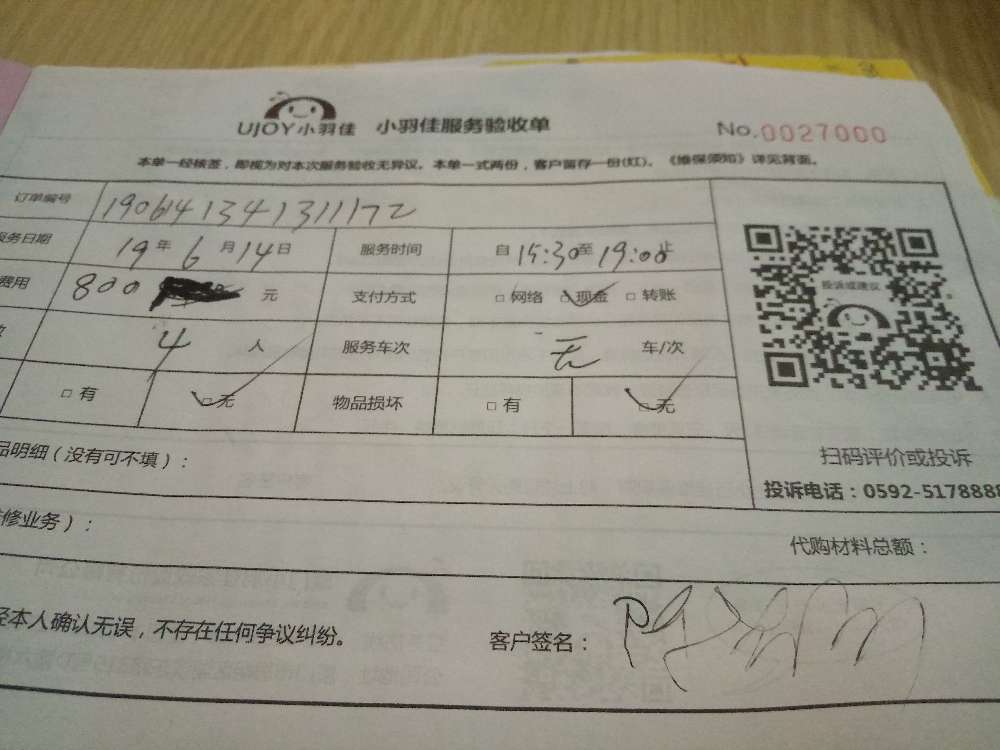 UJOY小羽佳 小羽佳服务验收单 No.0027000
本单一经核签，即视为对本次服务验收无异议。本单一式两份，客户留存一份(红)。《维保须知》详见背面。
订单编号 190614134131172
服务日期 19 年 6 月 14 日 服务时间 自 15:30 至 19:00 止
费用 800 元 支付方式 □ 网络 □ 现金 □ 转账
4 人 服务车次 无 车/次
□ 有 □ 无 物品损坏 □ 有 □ 无
投诉或建议
扫码评价或投诉
投诉电话：0592-5178888
品明细（没有可不填）：
修业务）：
代购材料总额：
经本人确认无误，不存在任何争议纠纷。 客户签名：